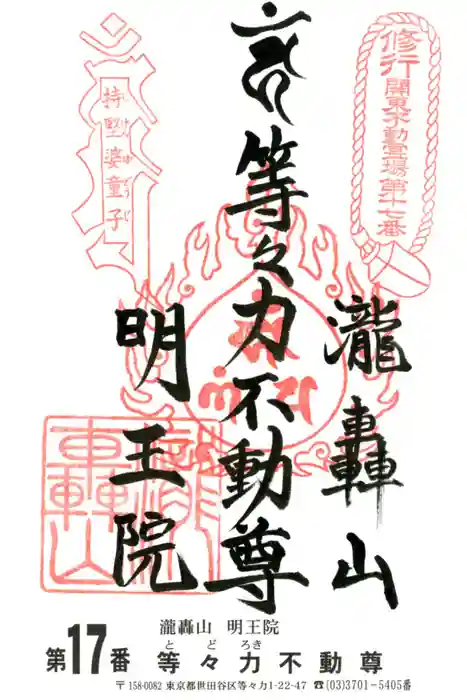 修行
関東不動霊場第十七番
持堅婆童子
等々力不動尊
瀧轟山
明王院
瀧轟山 明王院
第17番 等々力不動尊
とどろき
〒158-0082 東京都世田谷区等々力1-22-47 ☎(03)3701-5405番